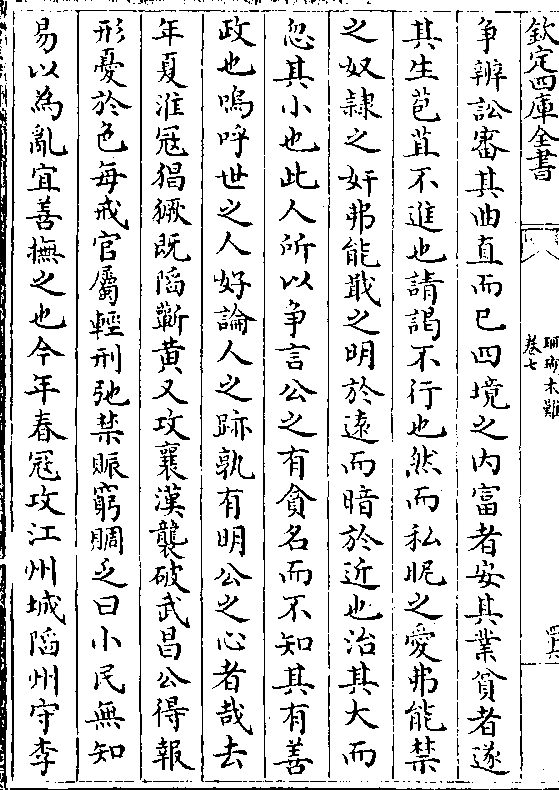 欽定四庫全書
珊瑚木難
卷七
争辨訟審其曲直而已四境之内富者安其業貧者遂
其生苞苴不進也請謁不行也然而私昵之愛弗能禁
之奴隷之奸弗能戢之明於逺而暗於近也治其大而
忽其小也此人所以争言公之有貪名而不知其有善
政也嗚呼世之人好論人之跡孰有明公之心者哉去
年夏淮冦猖獗既䧟蘄黄又攻襄漢襲破武昌公得報
形憂於色每戒官屬輕刑弛禁賑窮賙乏曰小民無知
易以為亂宜善撫之也今年春冦攻江州城䧟州守李